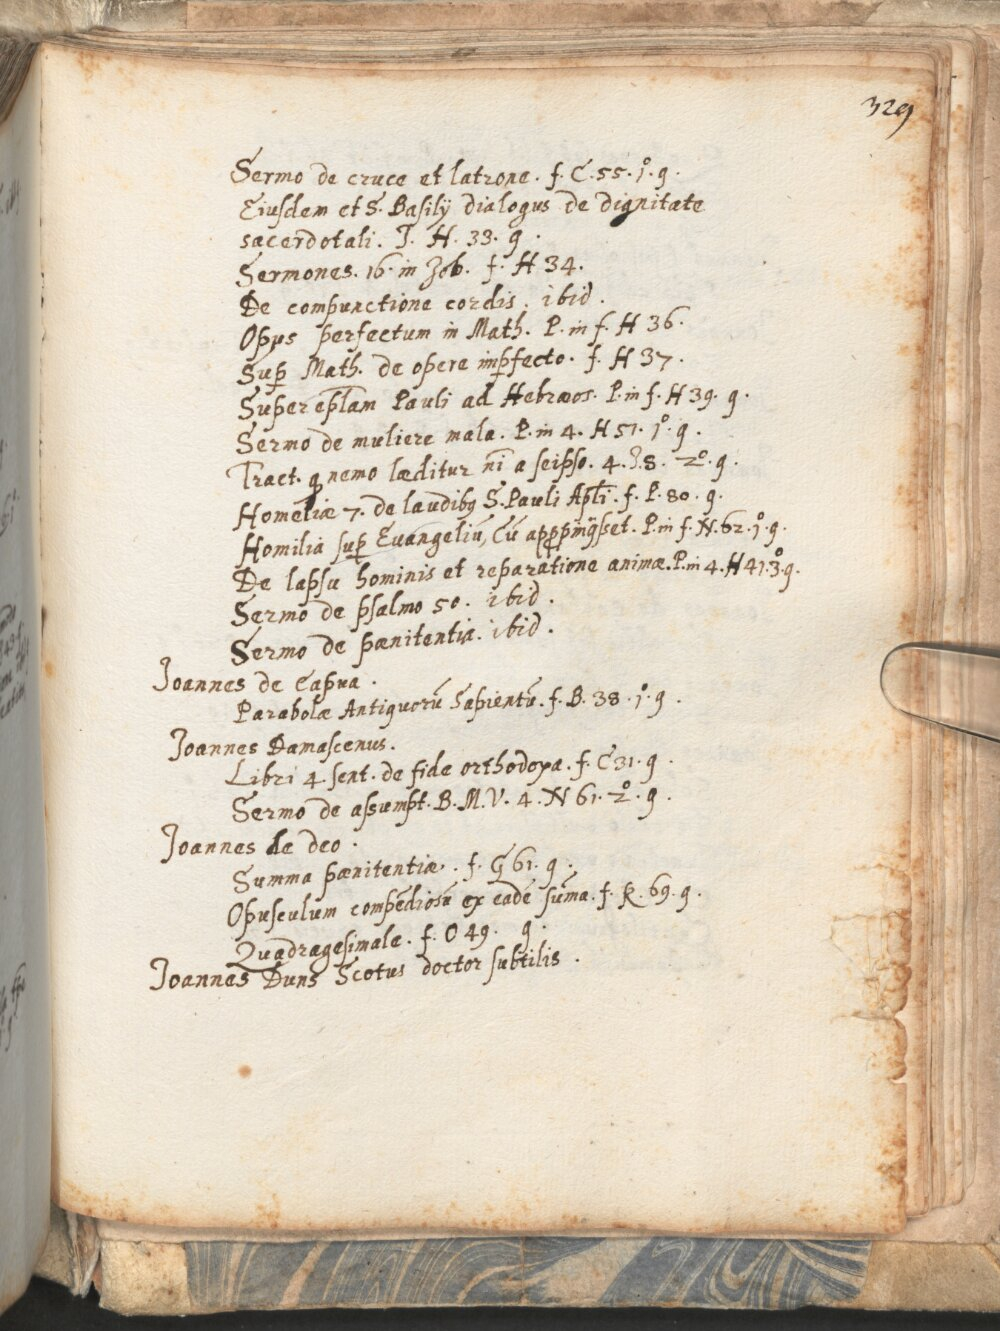 329
Sermo de cruce et latrone. f. C. 55. 1º. g.
Eiusdem et S. Basilij dialogus de dignitate
sacerdotali. T. H. 33. g.
Sermones. 16. in Job. f. H 34.
De compunctione cordis. ibid.
Opus perfectum in Math. P. in f. H 36.
Sup̱ Math. de opere imp̱fecto. f. H 37.
Super ep̄lam Pauli ad Hebræos. P. in f. H 39. g.
Sermo de muliere mala. P. in 4. H 51. 1º. g.
Tract. q̱ nemo læditur nī a seipso. 4. 8. 2º. g.
Homeliæ 7. de laudibꝰ S. Pauli Apl̄i. f. P. 80. g.
Homilia sup̱ Euangeliū, Cū appp̱inq̄sset. P. in f. N. 62. 1º. g.
De lapsu hominis et reparatione animæ. P. in 4. H 41. 3º. g.
Sermo de psalmo 50. ibid.
Sermo de pænitentia. ibid.
Joannes de Capua.
Parabolæ Antiquorū Sapientū. f. B. 38. 1º. g.
Joannes Damascenus.
Libri 4 sent. de fide orthodoxa. f. C 31. g.
Sermo de assumpt. B. M. V. 4. N 61. 2º. g.
Joannes de deo.
Summa pænitentiæ. f. G 61. g.
Opusculum compēdiosū ex eadē sūma. f. R. 69. g.
Quadragesimale. f. O 49. g.
Joannes Duns Scotus doctor subtilis.